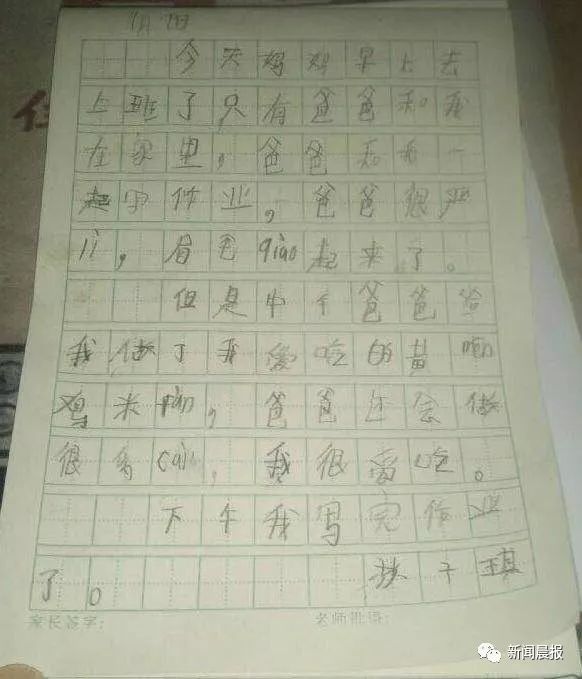 今天妈妈早上去
上班了只有爸爸和我
在家里，爸爸和我一
起写作业，爸爸很严
lì，眉毛qiào起来了。
但是中午爸爸给
我做了我爱吃的黄 mèn
鸡米 fàn，爸爸还会做
很多cài，我很爱吃。
下午我写完作业
了。 子琪
家长签字： 老师批语：
新闻晨报